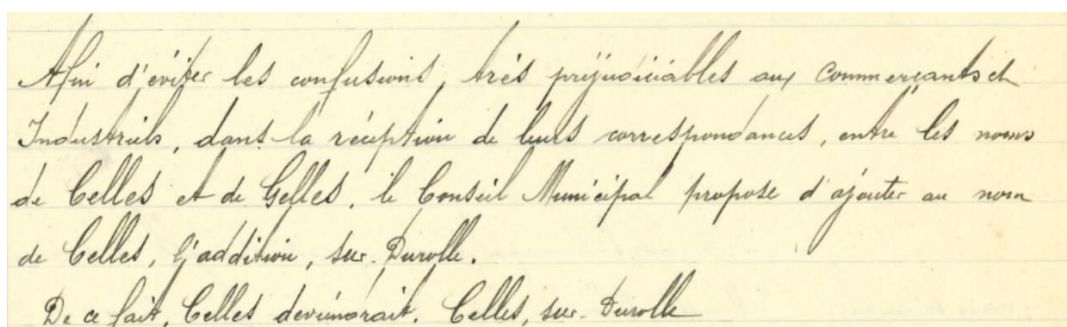 Afin d'éviter les confusions, très préjudiciables aux Commerçants et
Industriels, dans la réception de leurs correspondances, entre les noms
de Celles et de Gelles, le Conseil Municipal propose d'ajouter au nom
de Celles, l'addition, sur-Durolle.
De ce fait, Celles deviendrait. Celles, sur-Durolle